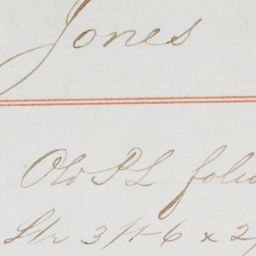 Jones
Old P L folio
Str 3 ft 6 x 2